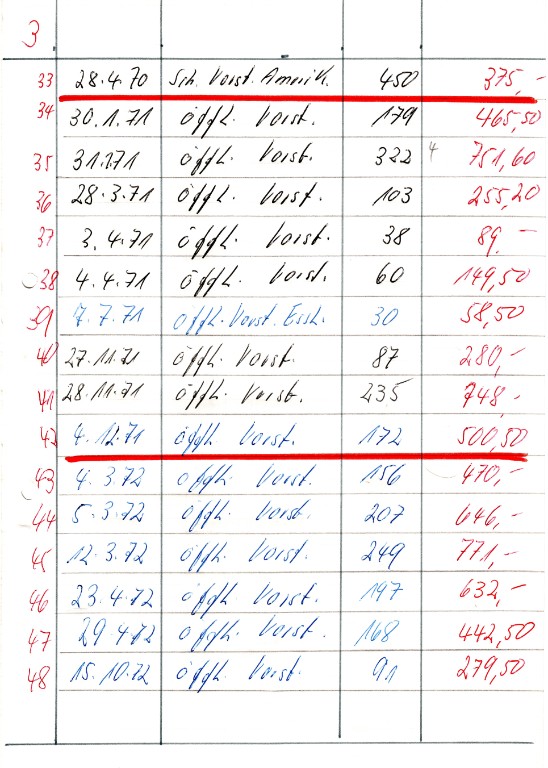 3
33 28.4.70 Sch. Vorst. Amerik. 450 375,-
34 30.1.71 öffh. Vorst. 179 465,50
35 31.1.71 öffh. Vorst. 322 4 751,60
36 28.3.71 öffh. Vorst. 103 255,20
37 3.4.71 öffh. Vorst. 38 89,-
38 4.4.71 öffh. Vorst. 60 149,50
39 7.7.71 öffh. Vorst. Essl. 30 58,50
40 27.11.71 öffh. Vorst. 87 280,-
41 28.11.71 öffh. Vorst. 235 748,-
42 4.12.71 öffh. Vorst. 172 500,50
43 4.3.72 öffh. Vorst. 156 470,-
44 5.3.72 öffh. Vorst. 207 646,-
45 12.3.72 öffh. Vorst. 249 771,-
46 23.4.72 öffh. Vorst. 197 632,-
47 29.4.72 öffh. Vorst. 168 442,50
48 15.10.72 öffh. Vorst. 91 279,50